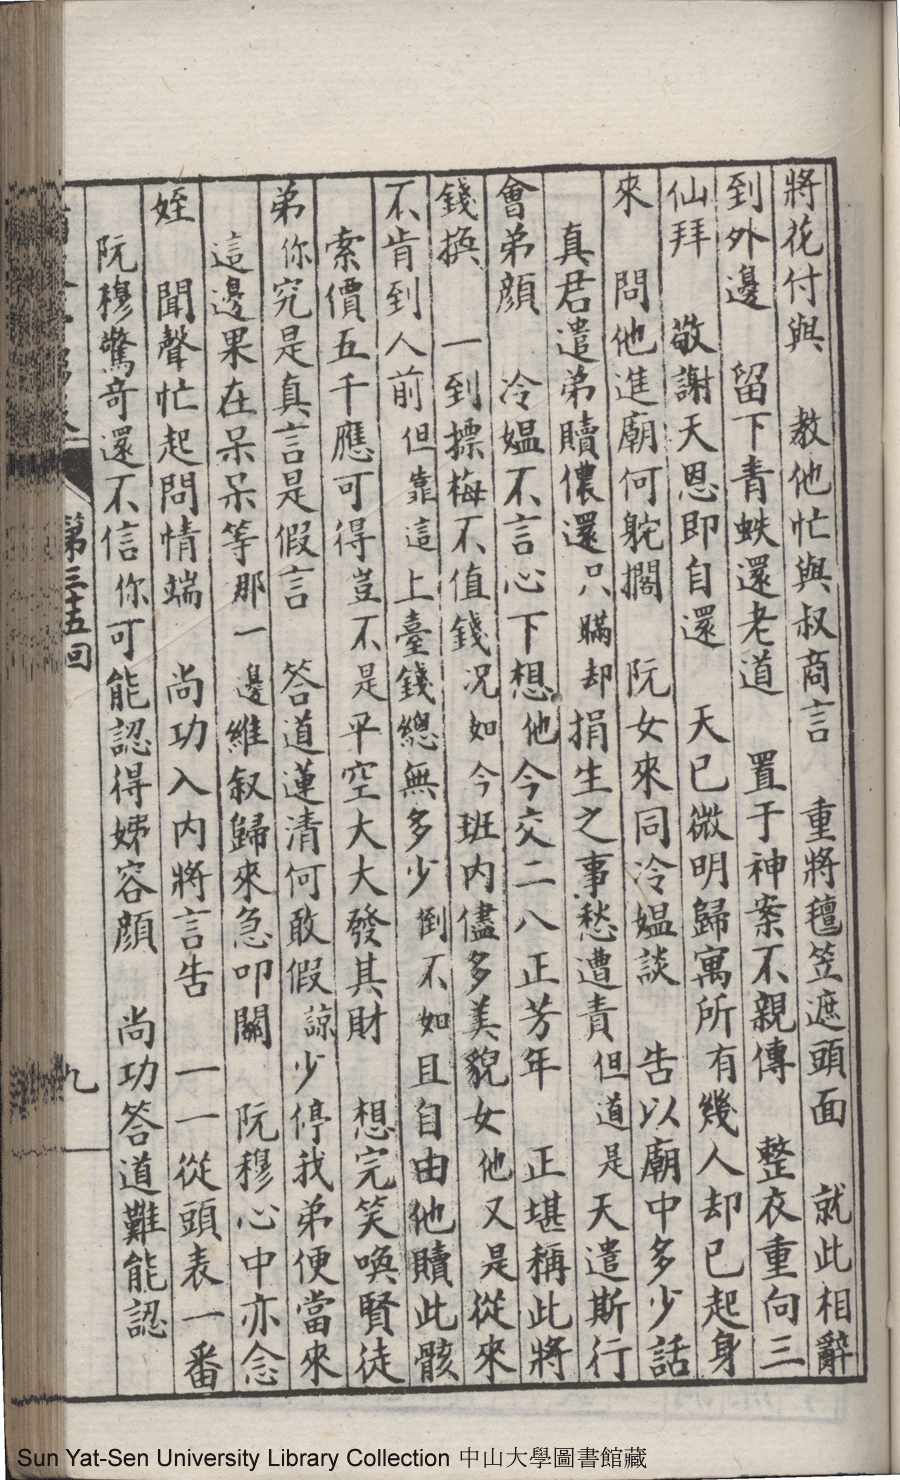 將花付與　教他忙與叔商言　重將氊笠遮頭面　就此相辭
到外邊　留下青蚨還老道　置于神案不親傳　整衣重向三
仙拜　敬謝天恩即自還　天已微明歸寓所有幾人却已起身
來　問他進廟何躭擱　阮女來同冷媼談　告以廟中多少話
真君遣弟贖儂還只瞞却捐生之事愁遭責但道是天遣斯行
會弟顔　冷媼不言心下想他今交二八正芳年　正堪稱此將
錢換　一到摽梅不值錢况如今班内儘多美貌女他又是從來
不肯到人前但靠這上臺錢總無多少倒不如且自由他贖此骸
索價五千應可得豈不是平空大大發其財　想完笑喚賢徒
弟你究是真言是假言　答道蓮清何敢假諒少停我弟便當來
這邊果在呆呆等那一邊維叙歸來急叩關　阮穆心中亦念
姪　聞聲忙起問情端　尚功入内將言告　一一從頭表一番
阮穆驚奇還不信你可能認得姊容顔　尚功答道難能認
第三十五回
九
Sun Yat-Sen University Library Collection 中山大學圖書館藏